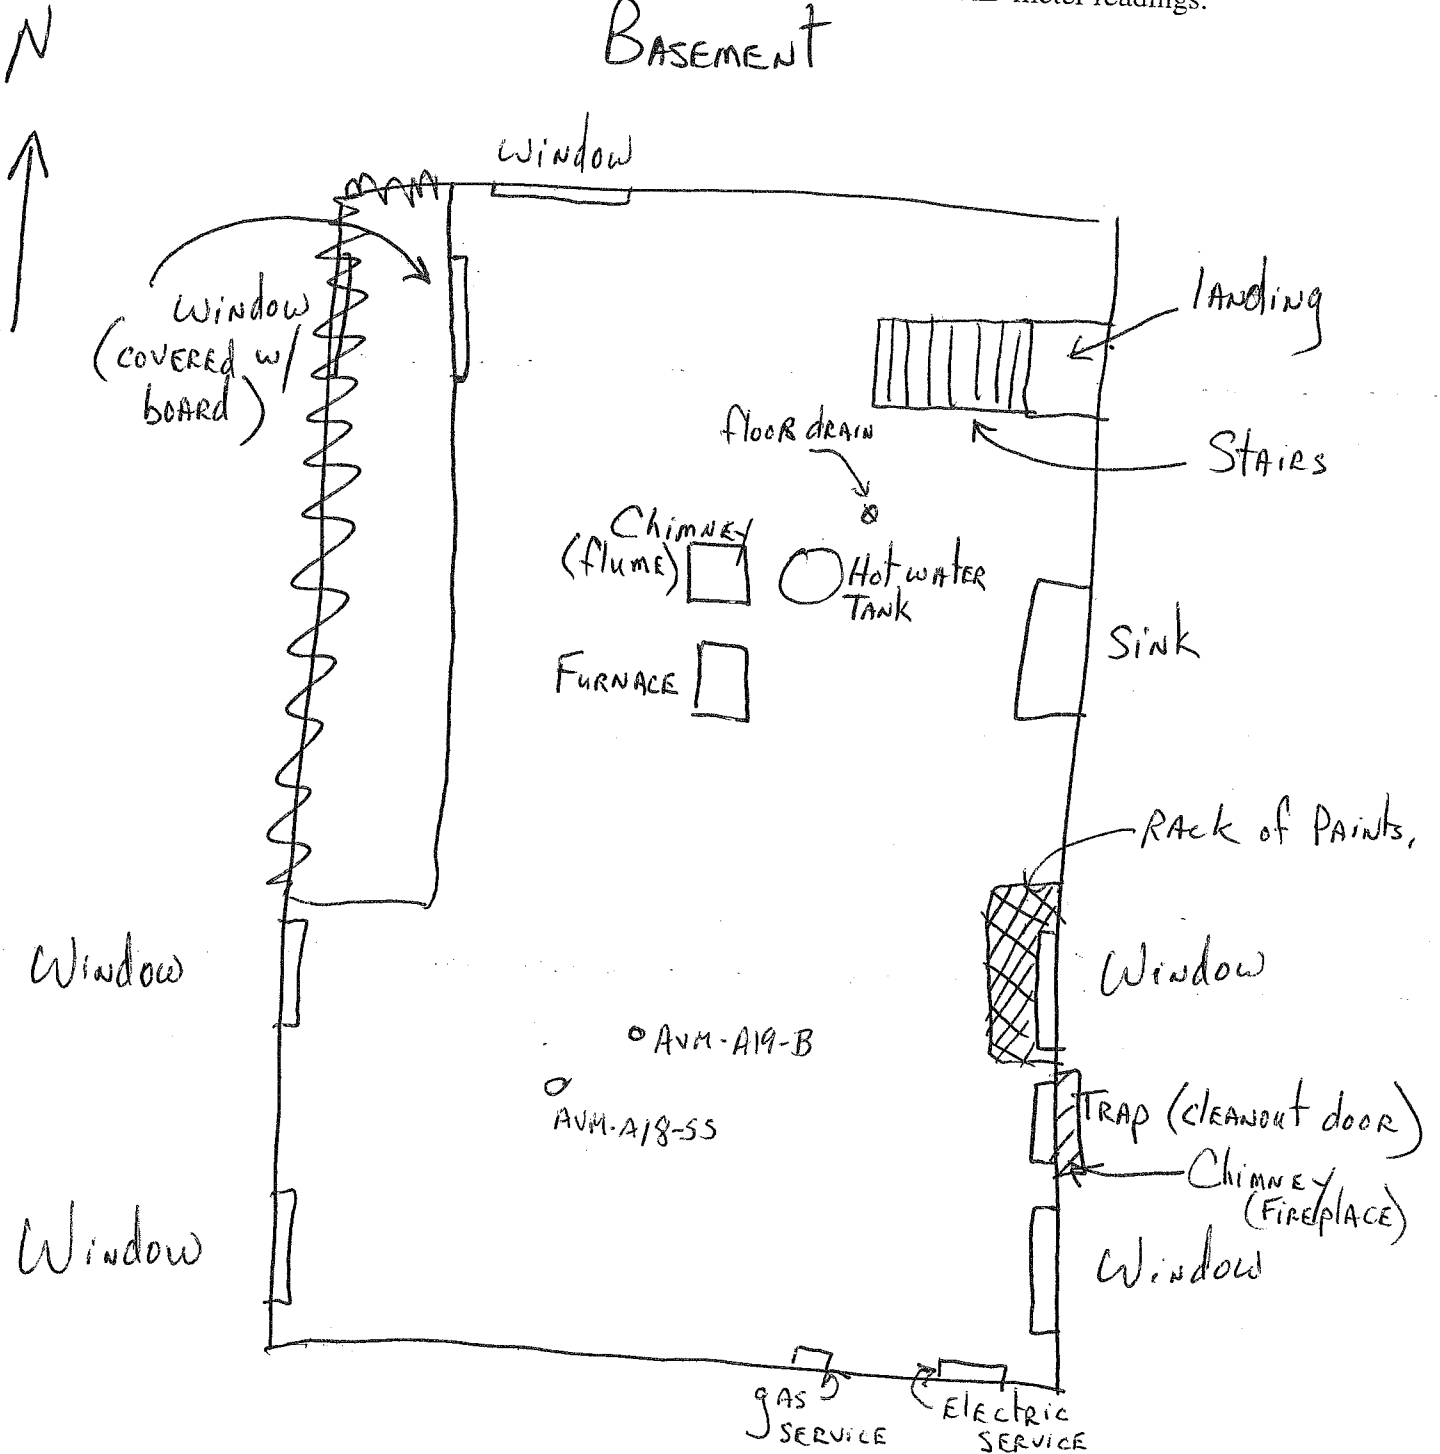 meter readings.
N
BASEMENT
Window
Window
(covered w/
board)
landing
Stairs
floor drain
Chimney
(flume)
Hot water
Tank
Furnace
Sink
Rack of Paints.
Window
Window
AVM-A19-B
AVM-A18-SS
Trap (cleanout door)
Chimney
(Fireplace)
Window
Window
gas
service
Electric
service